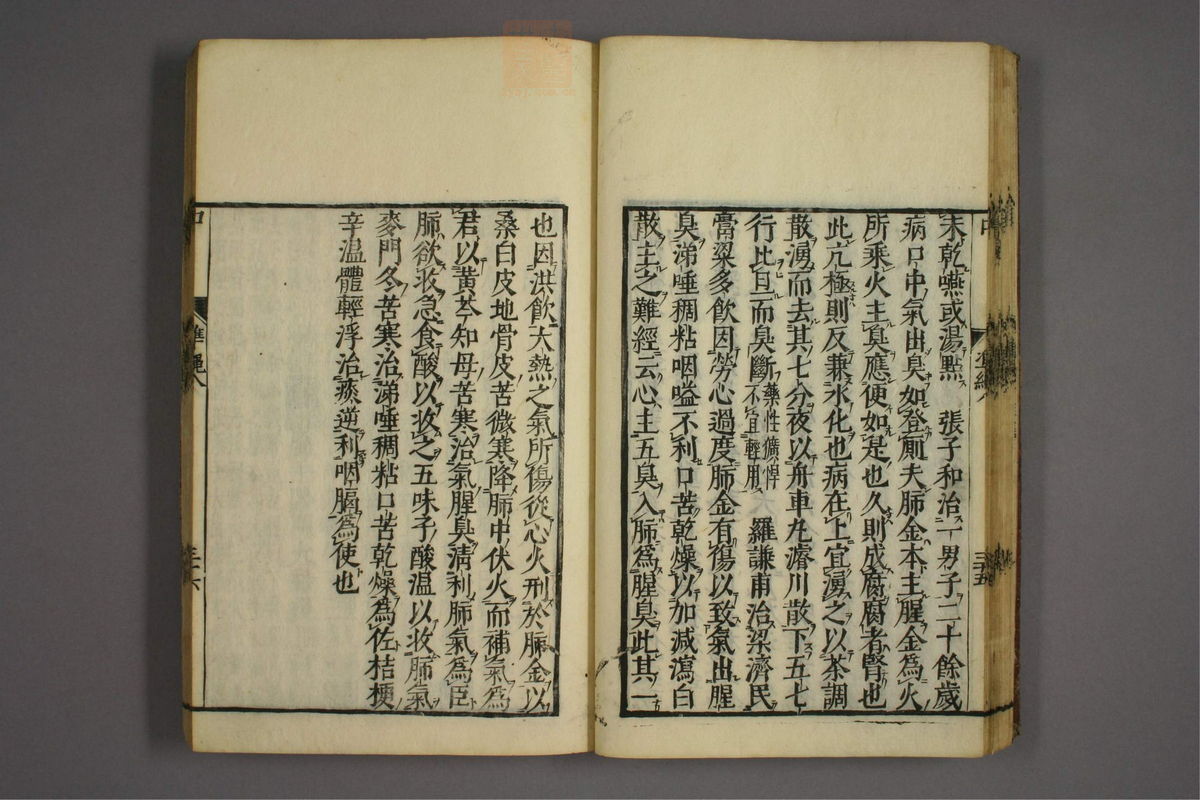 末乾嚥或湯點　張子和治一男子二十餘歲
病口中氣出臭如登廁夫肺金本主腥金為火
所乘火主臭應便如是也久則成腐腐者腎也
此亢極則反兼水化也病在上宜湧之以茶調
散湧而去其七分夜以舟車丸濬川散下五七
行比旦而臭斷藥性獷悍不宜輕用　羅謙甫治梁濟民
膏粱多飲因勞心過度肺金有傷以致氣出腥
臭涕唾稠粘咽嗌不利口苦乾燥以加減瀉白
散主之難經云心主五臭入肺為腥臭此其一
三十五
也因洪飲大熱之氣所傷從心火刑於肺金以
桑白皮地骨皮苦微寒降肺中伏火而補氣為
君以黃芩知母苦寒治氣腥臭清利肺氣為臣
肺欲收急食酸以收之五味子酸溫以收肺氣
麥門冬苦寒治涕唾稠粘口苦乾燥為佐桔梗
辛溫體輕浮治痰逆利咽膈為使也
口
準繩八
三十六